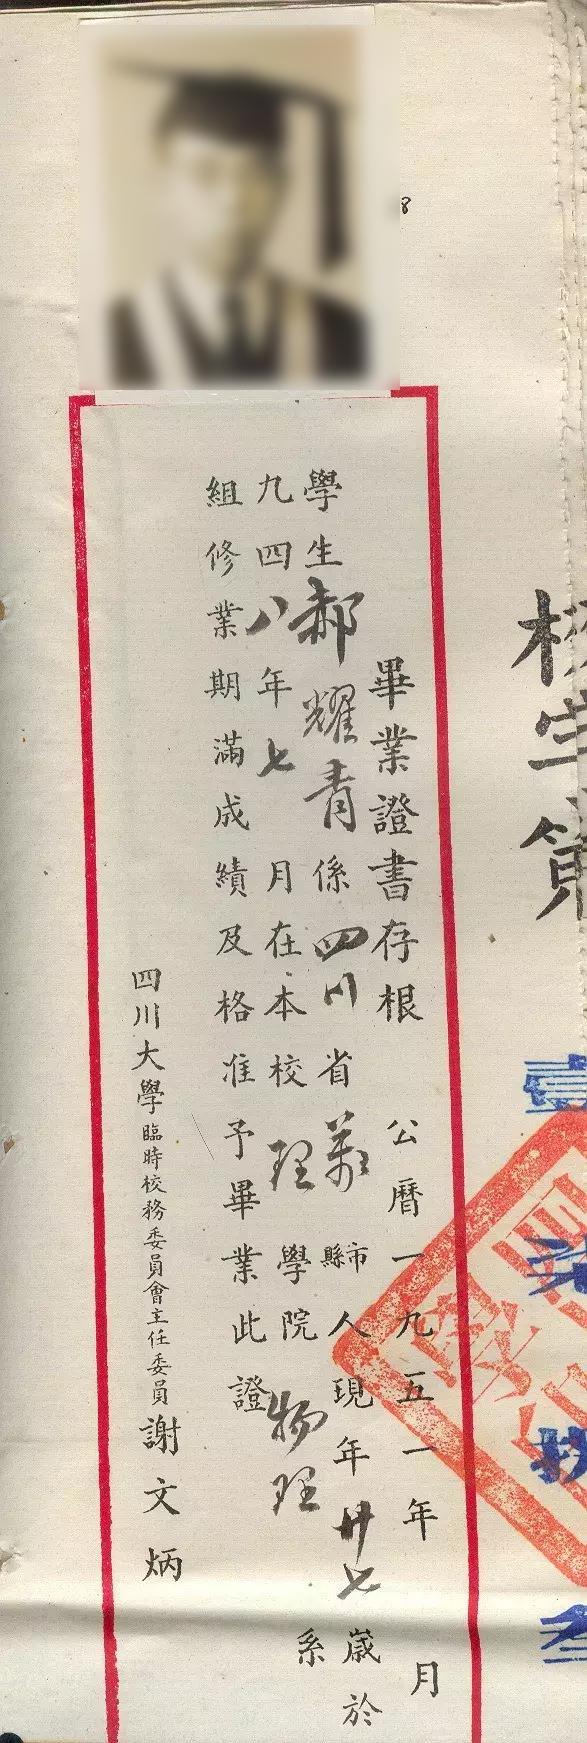 校字第
壹 柒 捌 叁
畢業證書存根 公曆一九五一年 月
學生郝耀青係四川省萬縣市人現年廿七歲於
九四八年七月在本校理學院物理系
組修業期滿成績及格准予畢業此證
四川大學臨時校務委員會主任委員謝文炳
8